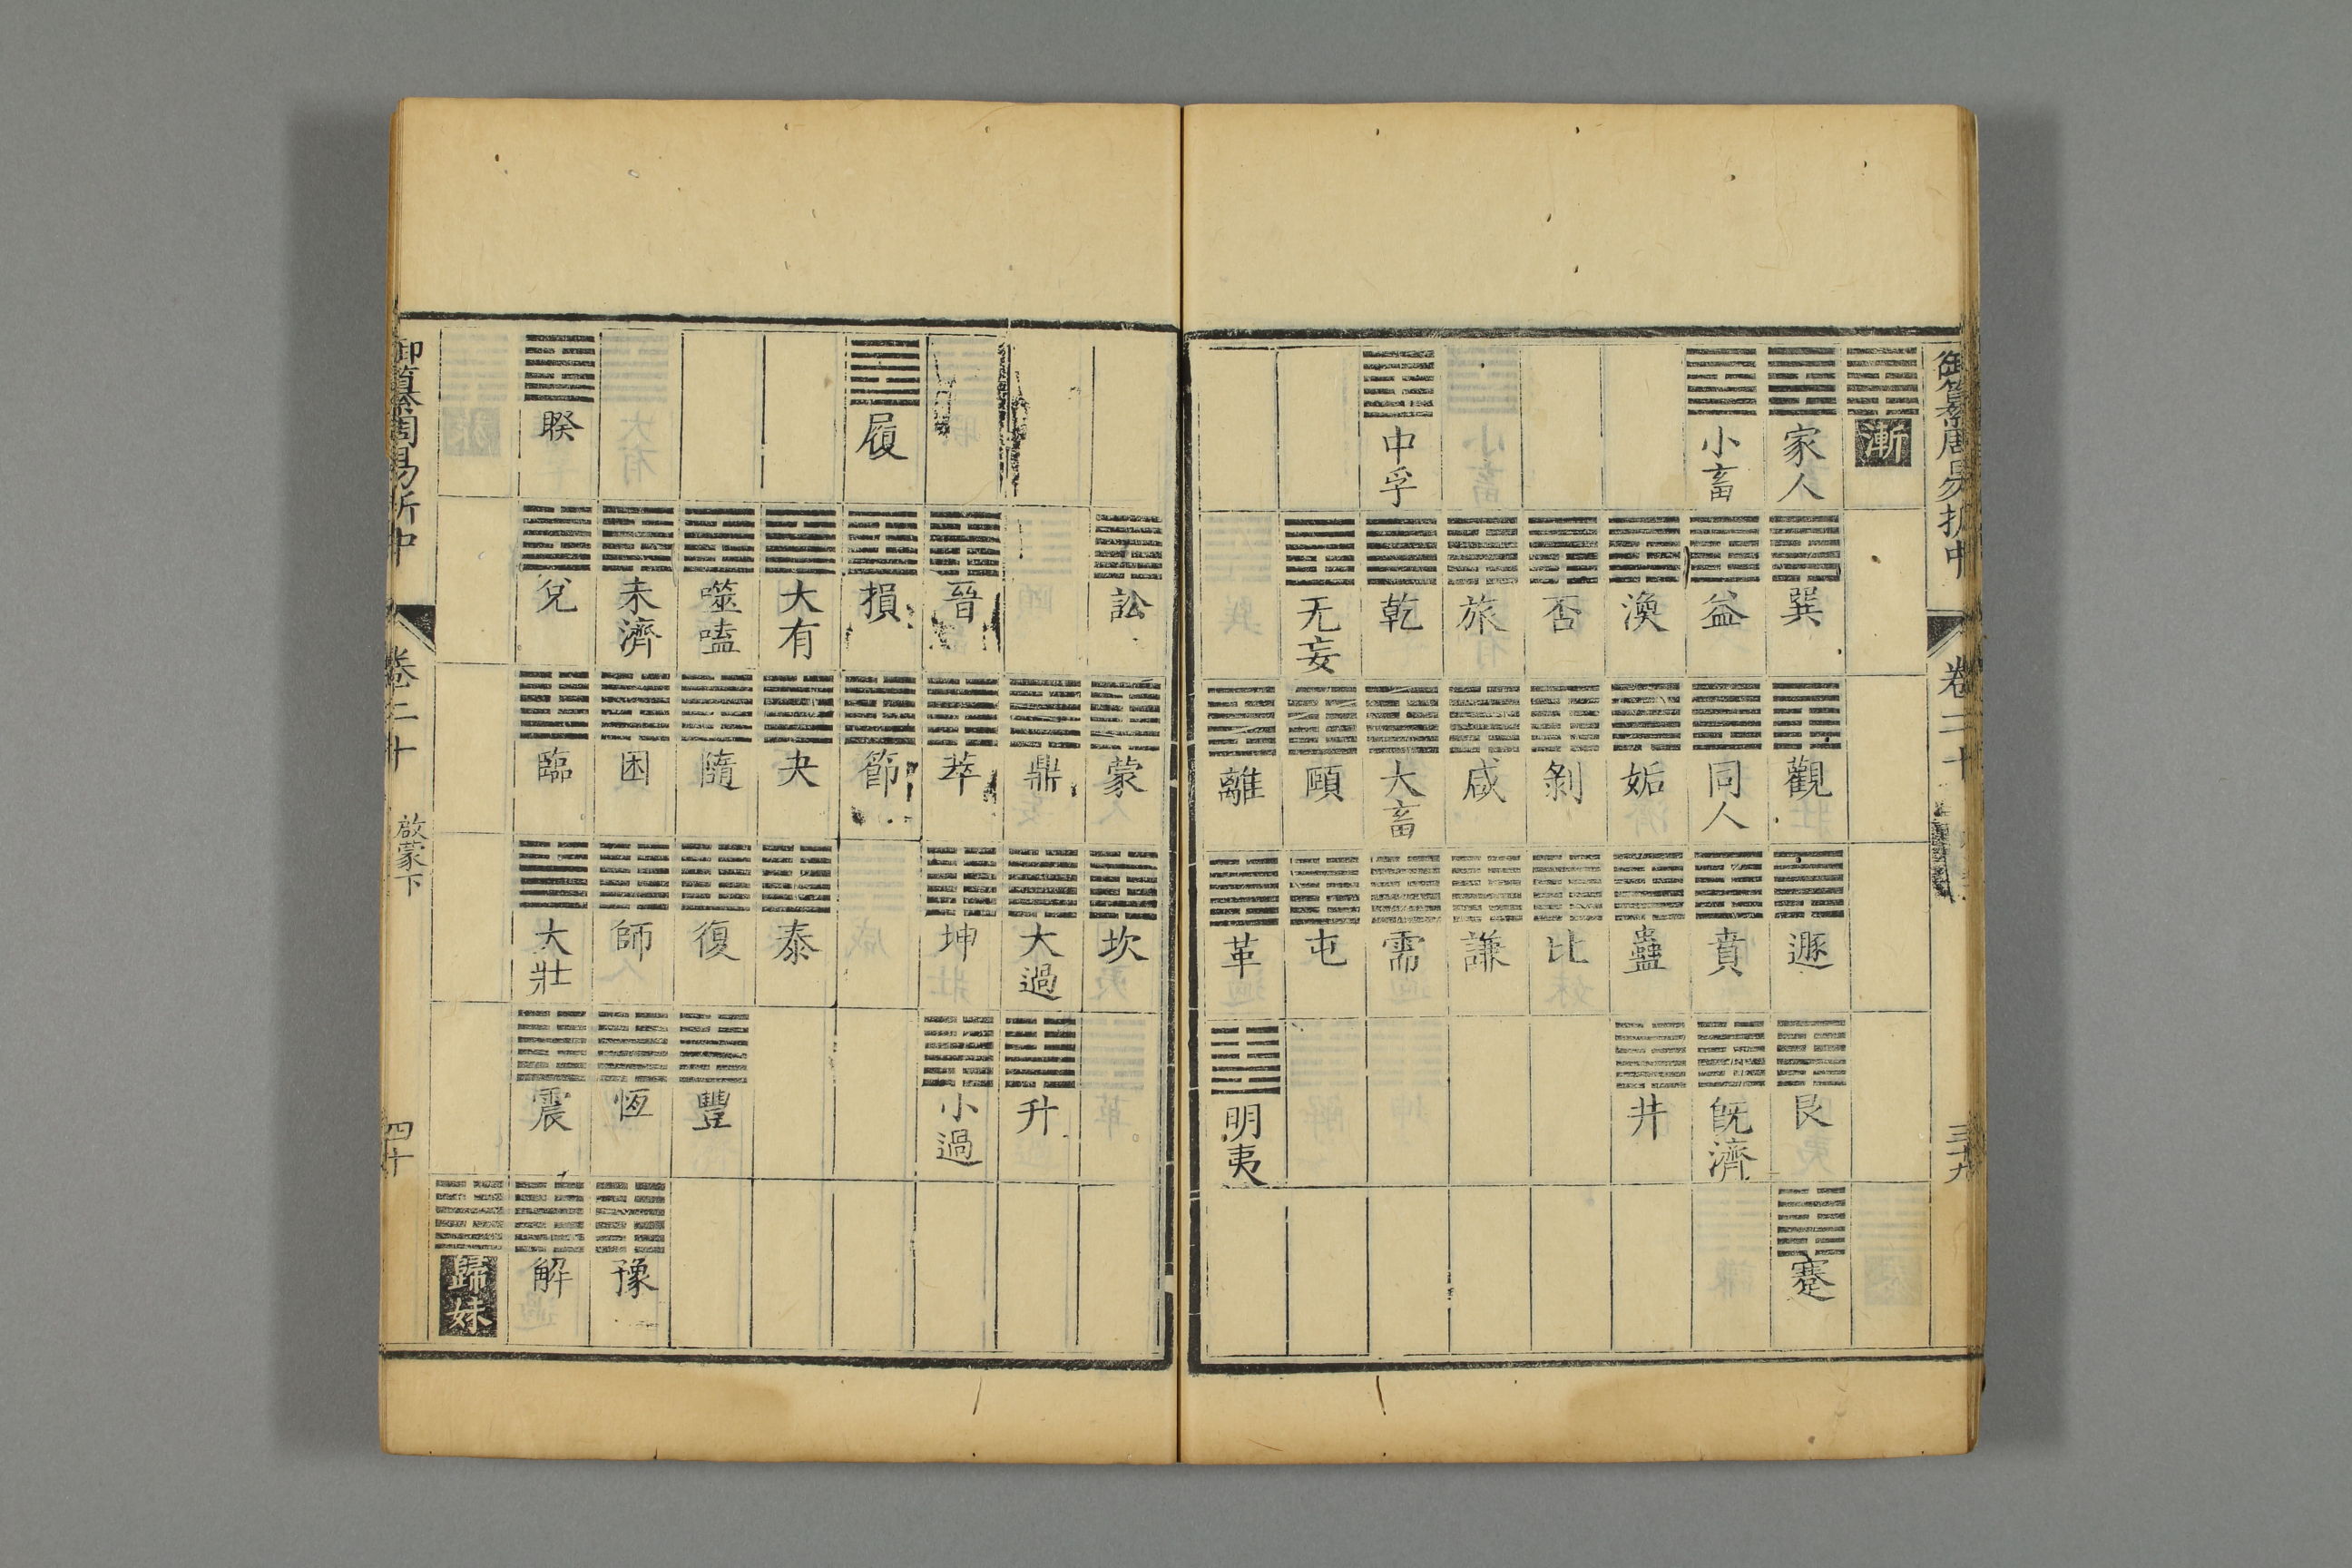 御纂周易折中 卷二十 三十九
漸
家人 巽 觀 遯 艮 蹇
小畜 益 同人 賁 旣濟
渙 姤 蠱 井
否 剝 比
旅 咸 謙
中孚 乾 大畜 需
无妄 頤 屯
離 革 明夷
訟 蒙 坎
鼎 大過 升
晉 萃 坤 小過
履 損 節
大有 夬 泰
噬嗑 隨 復 豐
未濟 困 師 恆 豫
睽 兌 臨 大壯 震 解
歸妹
御纂周易折中 卷二十 啟蒙下 四十